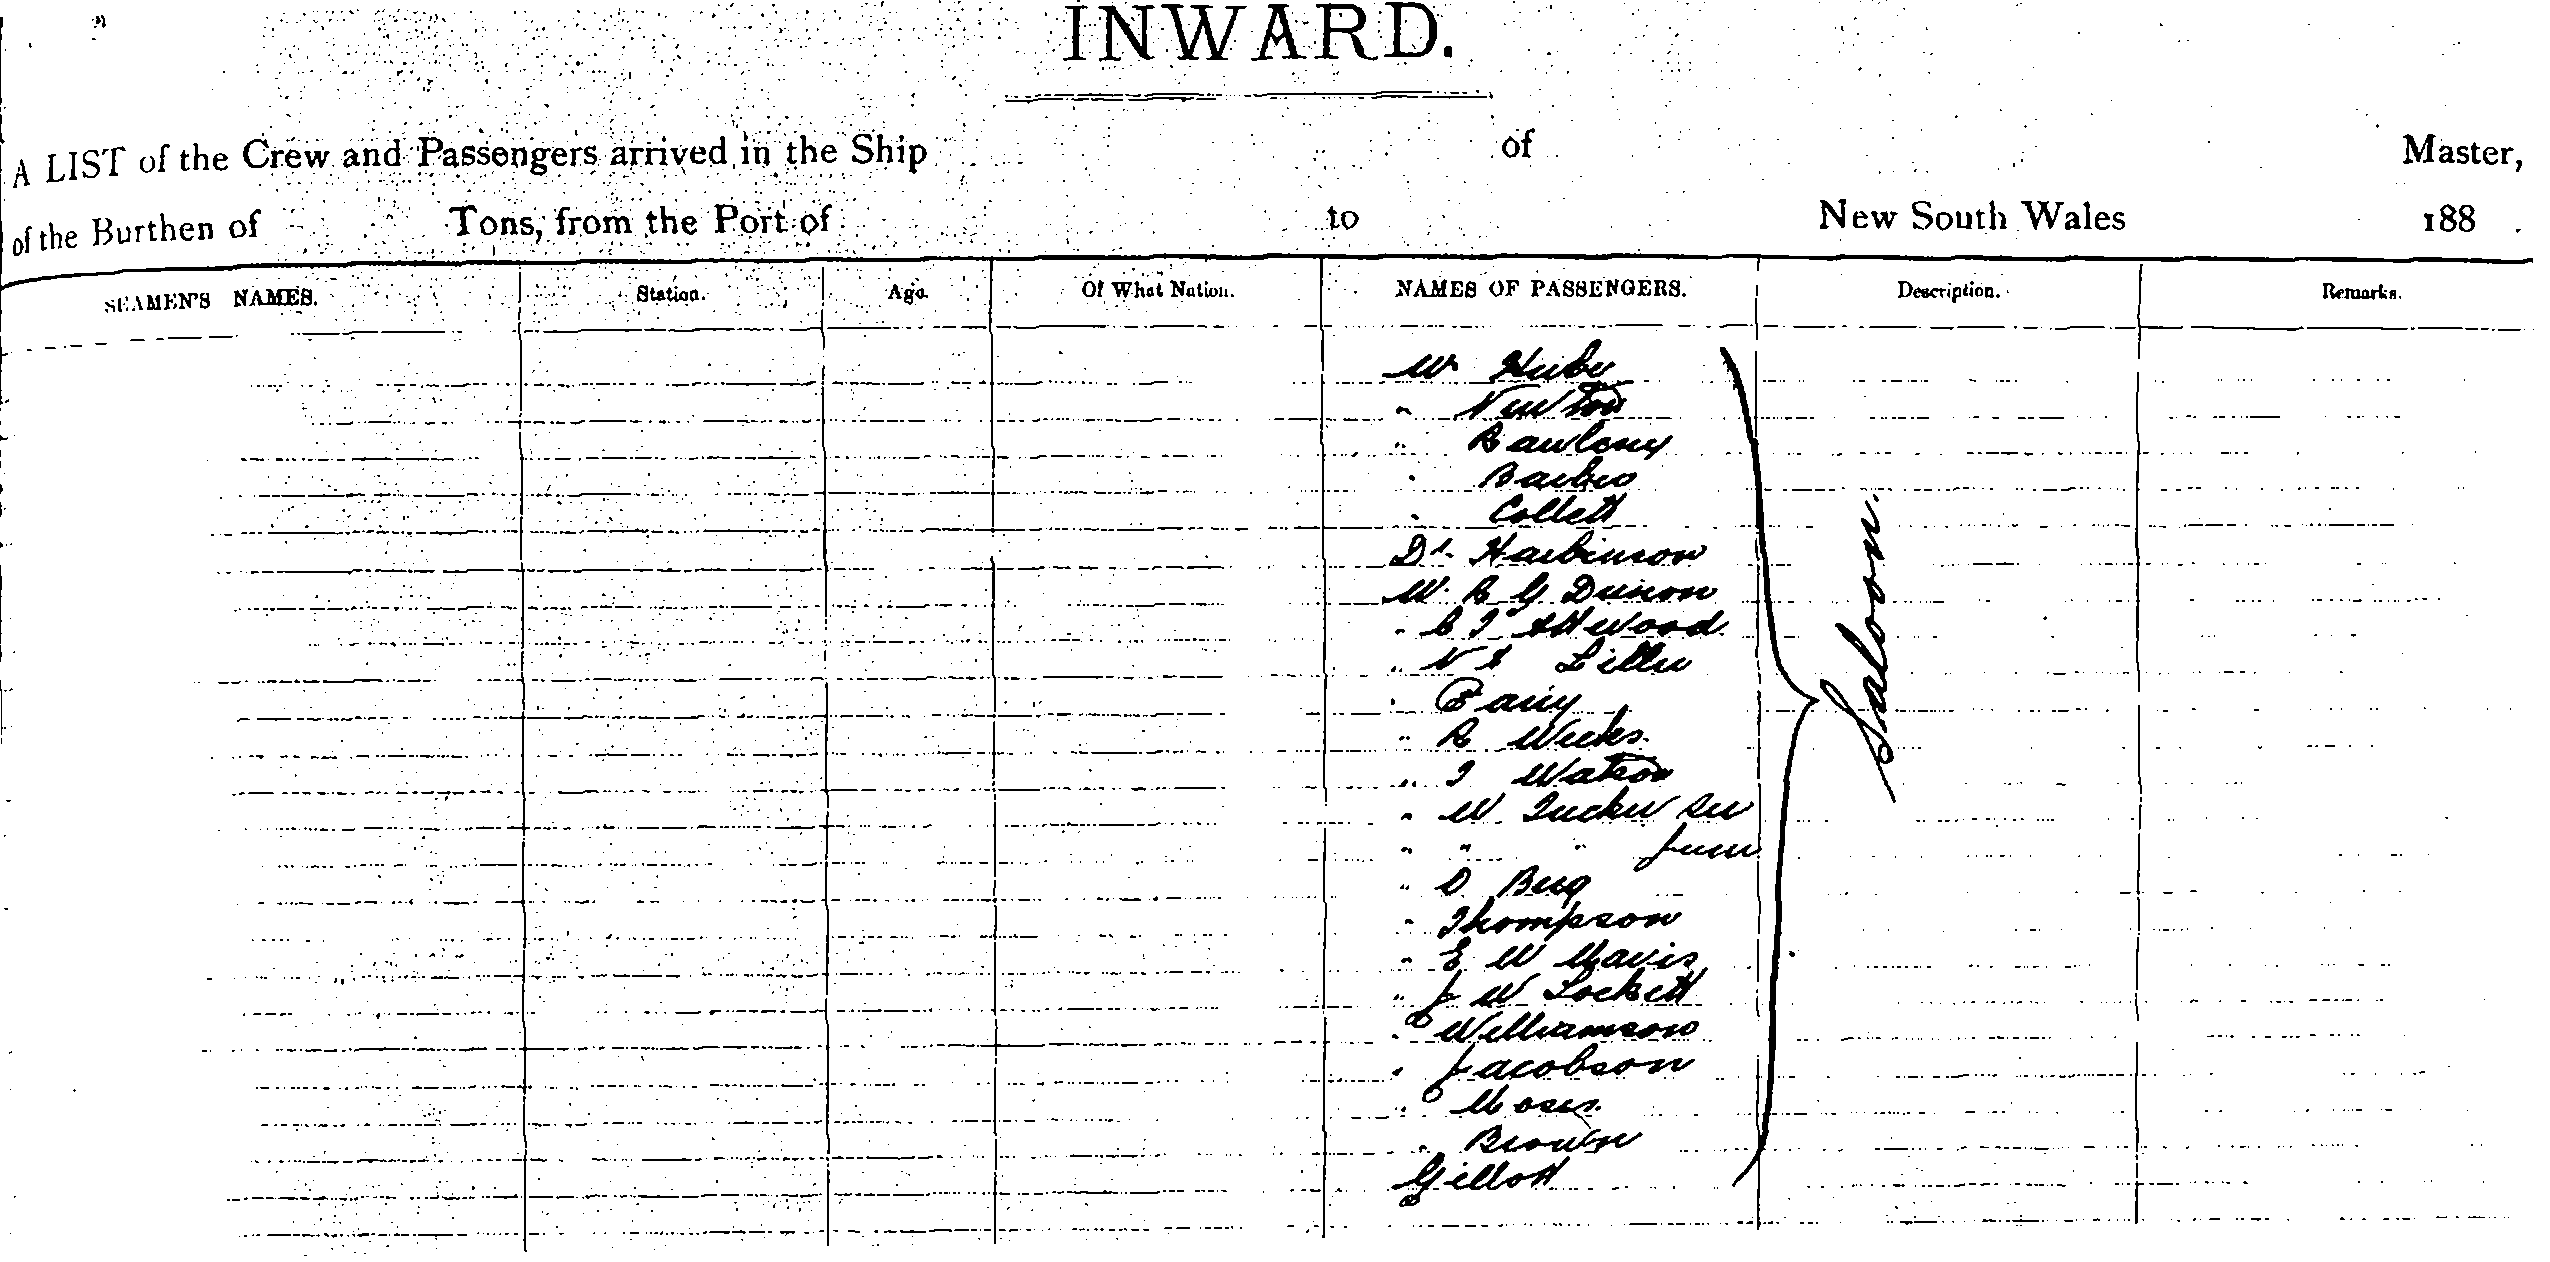 INWARD.
A LIST of the Crew and Passengers arrived in the Ship of Master,
of the Burthen of Tons, from the Port of to New South Wales 188 .
SEAMEN'S NAMES. Station. Age. Of What Nation. NAMES OF PASSENGERS. Description. Remarks.
Mr
" Newton
"
" Barber
" Collett
Dr. Harbinson
Mr R G
" Attwood
" N
"
" R Weeks
" Watson
" W Tucker Sen
" " " Junr
" O Berg
" Thompson
" E W Mavis
" J W Lockett
" Williamson
" Jacobson
" Moses
" Brown
Gillott
Saloon.